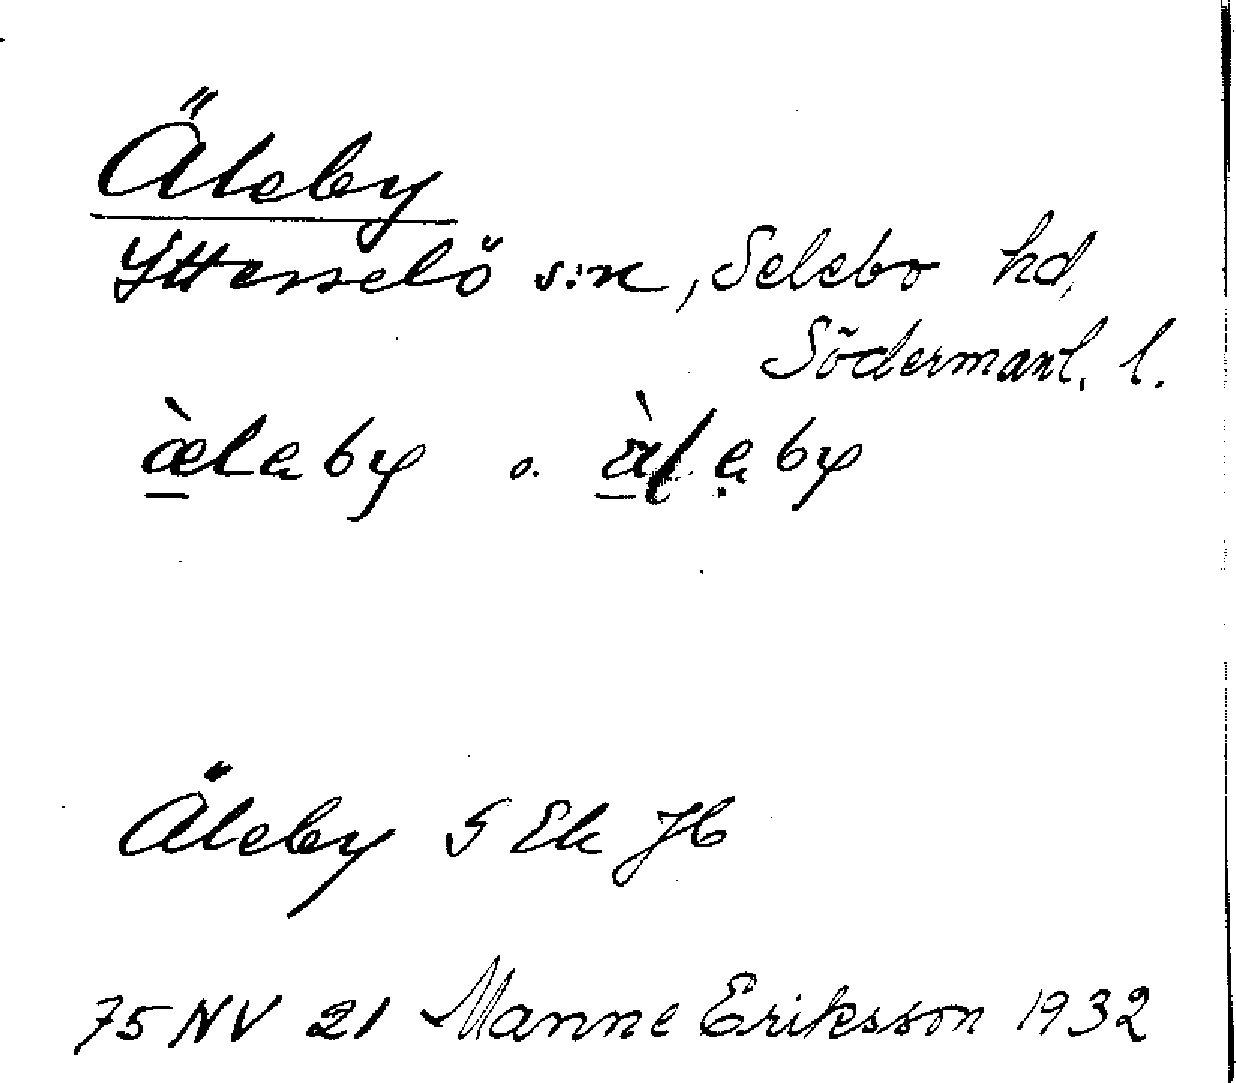 Äleby
Ytterselö s:n, Selebo hd,
Södermanl. l.
æ̀laby o. æ̀ɭạby
Äleby G Ek Jb
75 NV 21 Manne Eriksson 1932